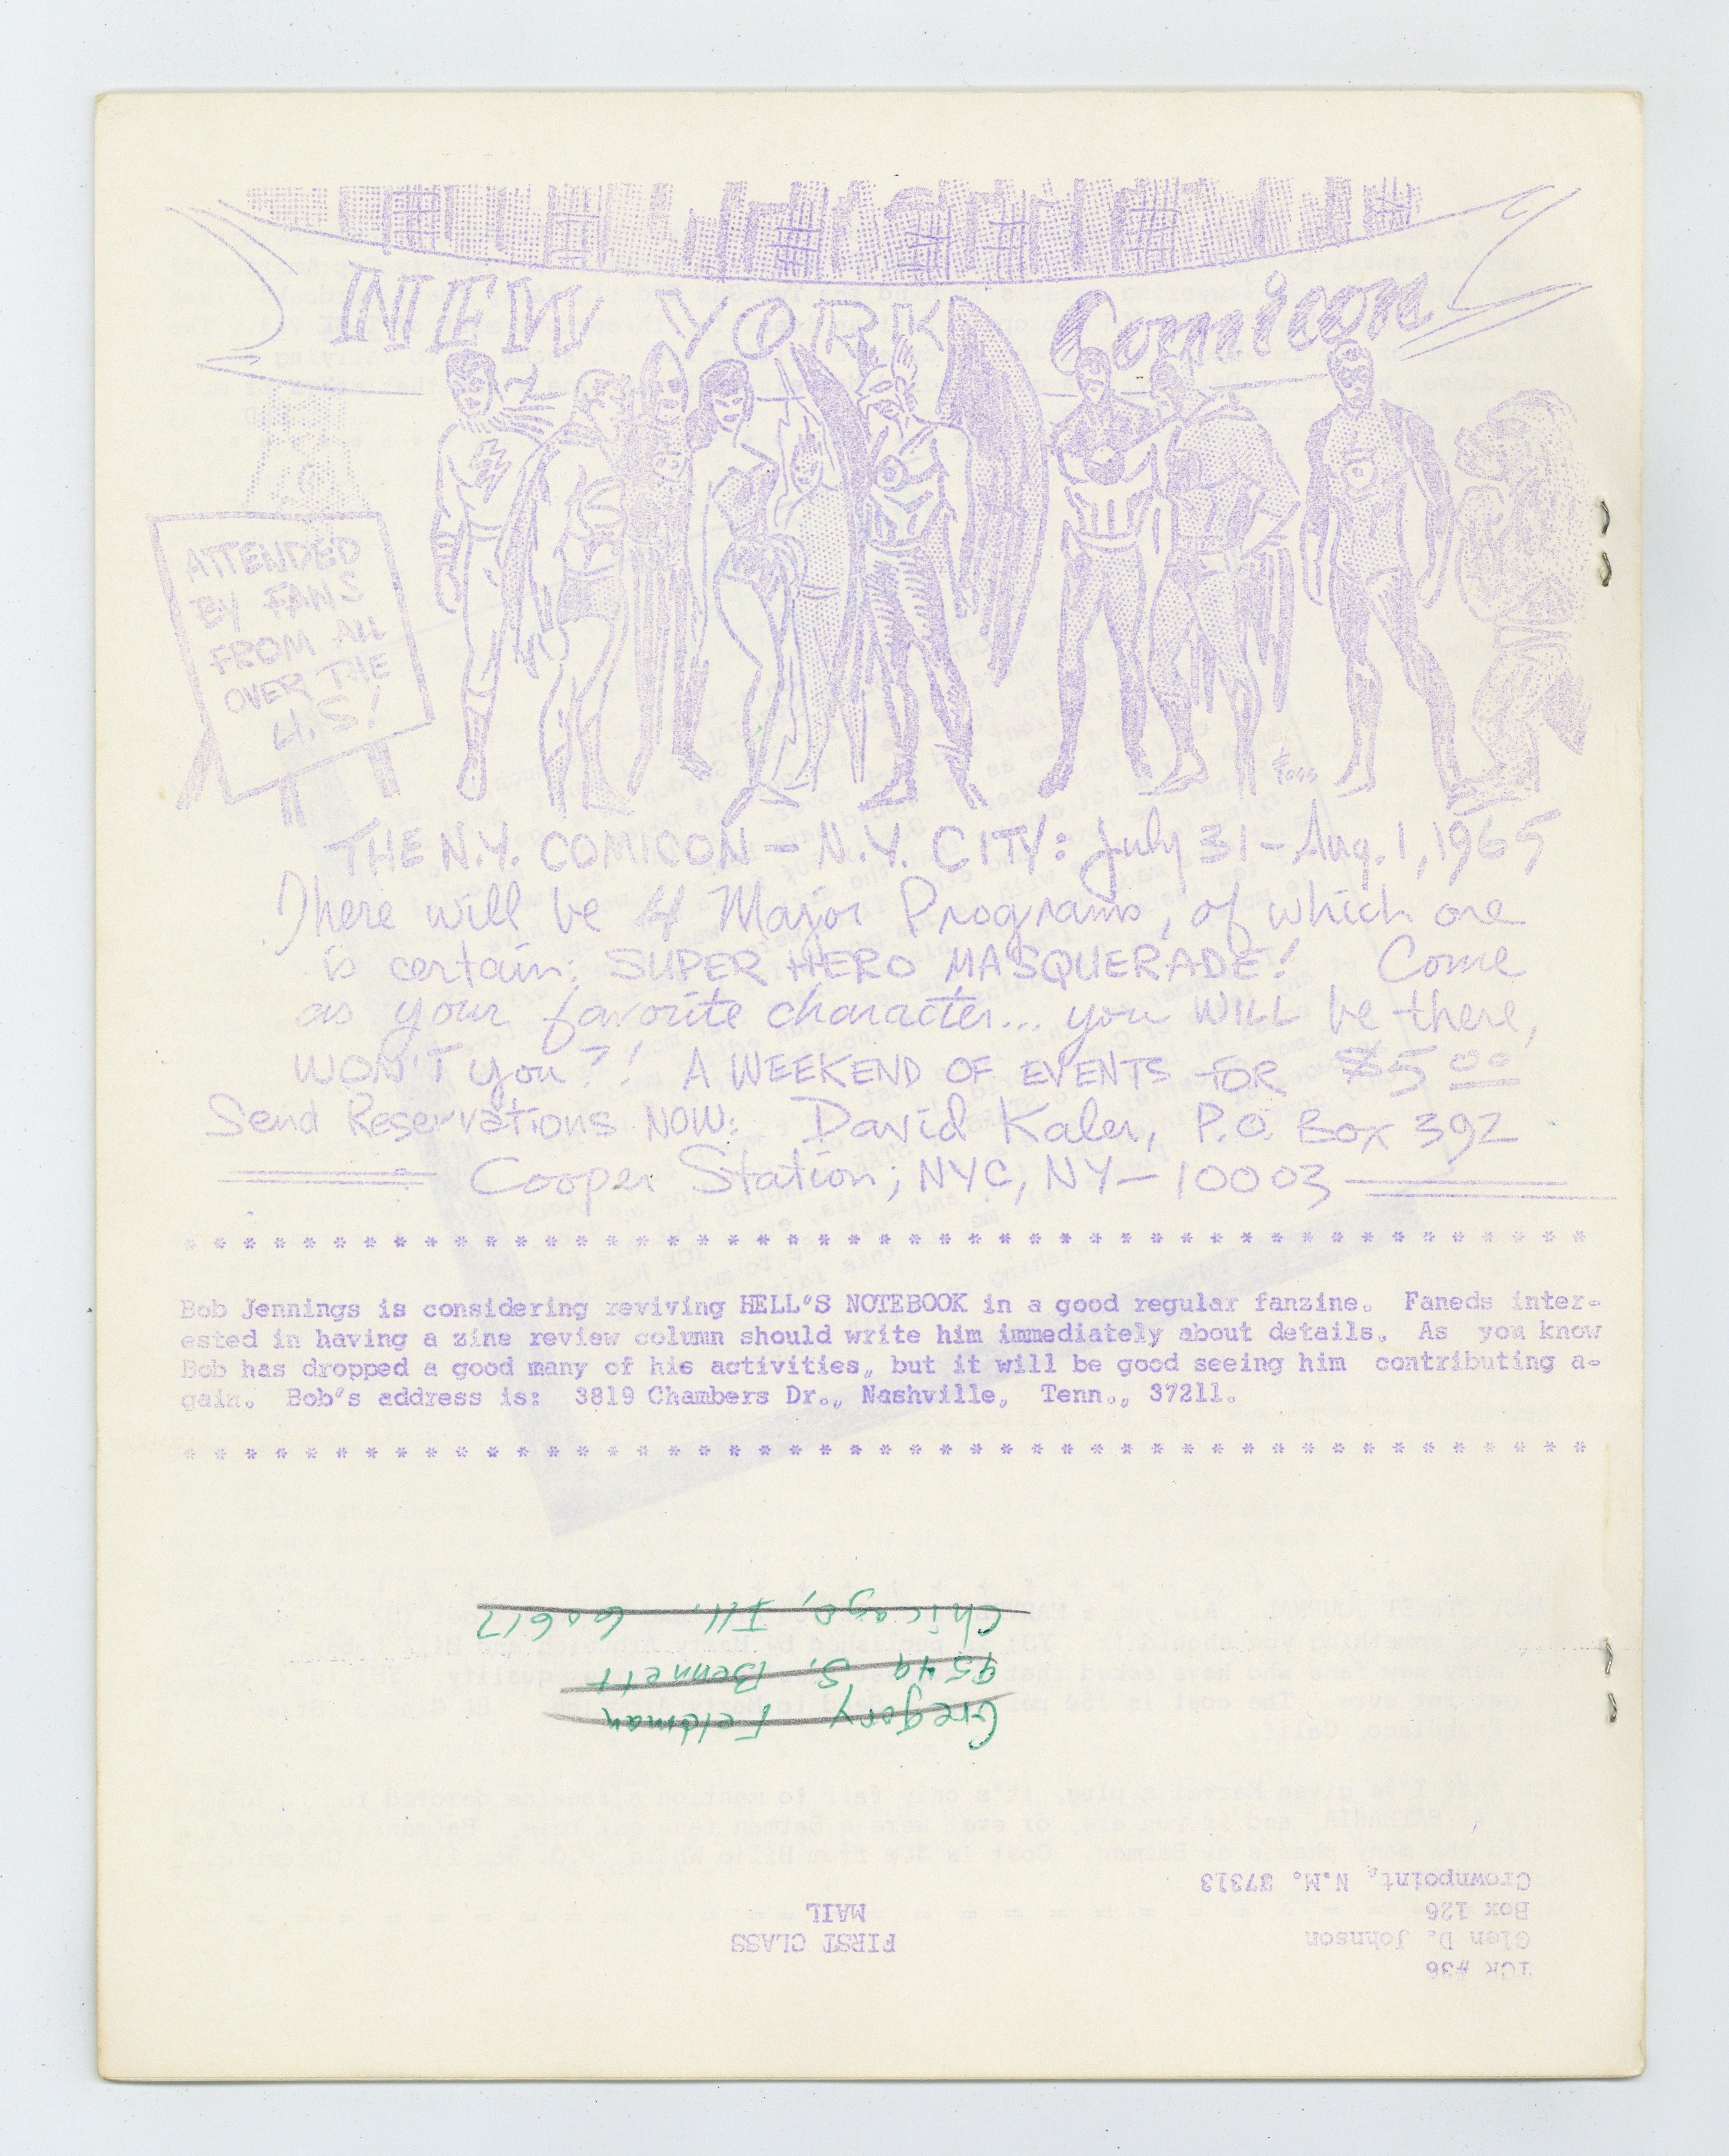 NEW YORK Comicon
ATTENDED
BY FANS
FROM ALL
OVER THE
U.S!
Foss
THE N.Y. COMICON — N.Y. CITY: July 31 – Aug. 1, 1965
There will be 4 Major Programs, of which one
is certain: SUPER HERO MASQUERADE! Come
as your favorite character... you WILL be there,
WON'T you?! A WEEKEND OF EVENTS FOR $5 00
Send Reservations NOW: David Kaler, P.O. Box 392
Cooper Station; NYC, NY — 10003
* * * * * * * * * * * * * * * * * * * * * * * * * * * * * * * * * * * * * * * * * * * * * * *
Bob Jennings is considering reviving HELL'S NOTEBOOK in a good regular fanzine. Faneds inter-
ested in having a zine review column should write him immediately about details. As you know
Bob has dropped a good many of his activities, but it will be good seeing him contributing a-
gain. Bob's address is: 3819 Chambers Dr., Nashville, Tenn., 37211.
* * * * * * * * * * * * * * * * * * * * * * * * * * * * * * * * * * * * * * * * * * * * * * *
TCR #36
Glen D. Johnson
Box 126
Crownpoint, N.M. 87313
FIRST CLASS
MAIL
Gregory Feldman
9549 S. Bennett
Chicago, Ill. 60617